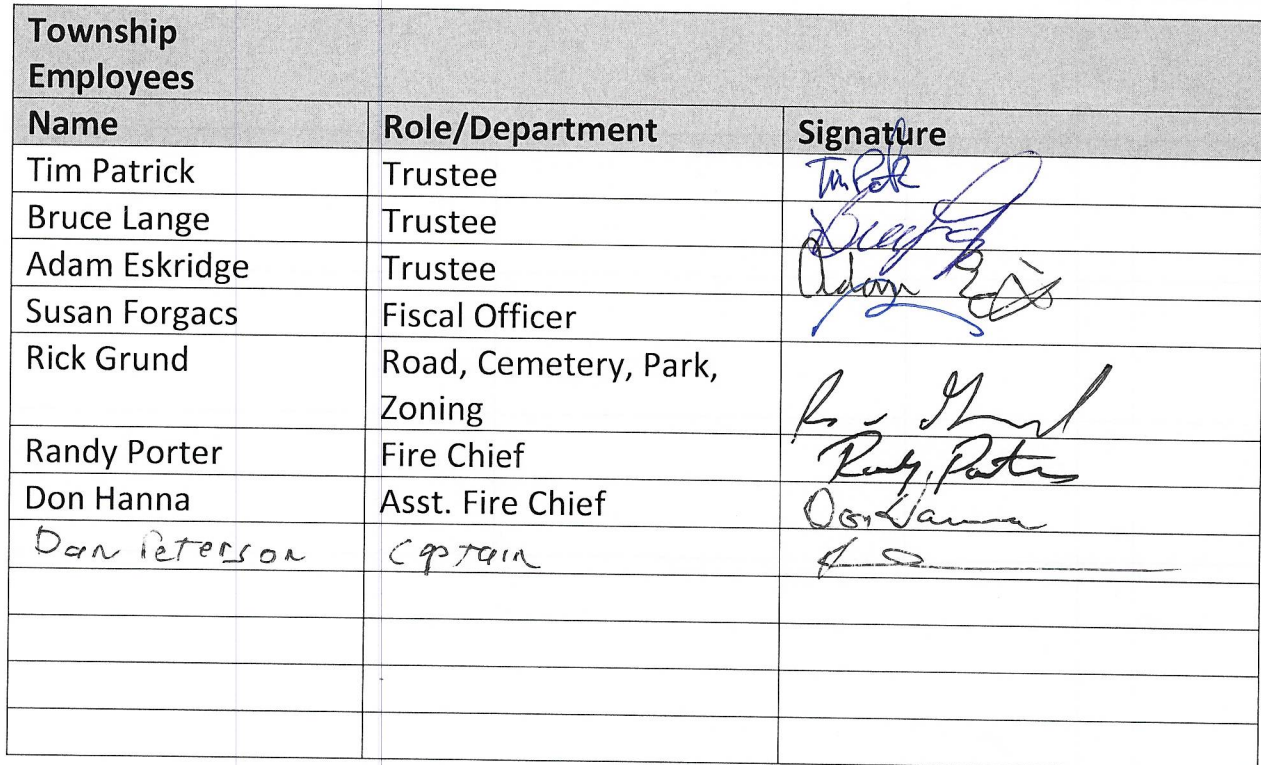 Township
Employees
Name Role/Department Signature
Tim Patrick Trustee
Bruce Lange Trustee
Adam Eskridge Trustee Adam
Susan Forgacs Fiscal Officer
Rick Grund Road, Cemetery, Park,
Zoning
Randy Porter Fire Chief Randy Porter
Don Hanna Asst. Fire Chief Don Hanna
Dan Peterson Captain